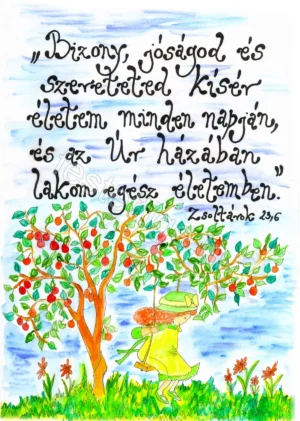 „Bizony, jóságod és
szereteted kísér
életem minden napján,
és az Úr házában
lakom egész életemben.”
Zsoltárok 23,6